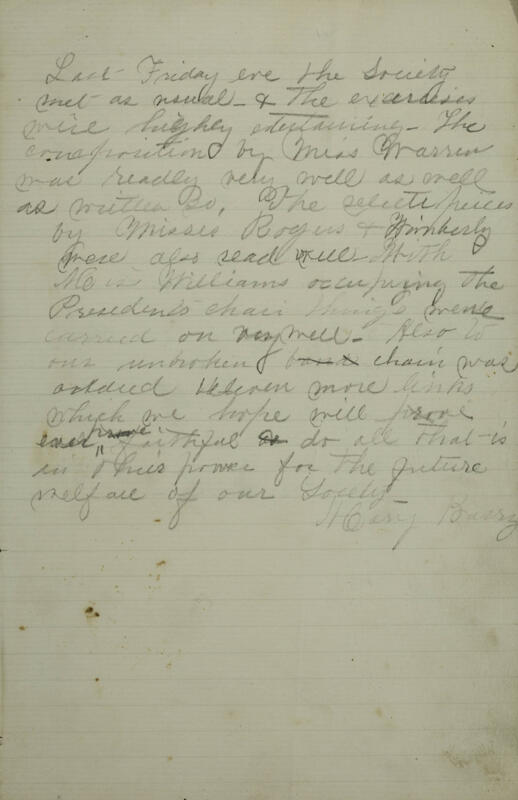 Last Friday eve the Society
met as usual - & the exercises
were highly entertaining - The
composition by Miss Warren
was readly very well as well
as written so. The select pieces
by Misses Rogers & Kimberly
were also read well - With
Miss Williams occupying the
Presidents chair things were
carried on very well - Also to
our unbroken chain was
added eleven more links
which we hope will prove
faithful & do all that is
in their power for the future
welfare of our Society
Mary Barry